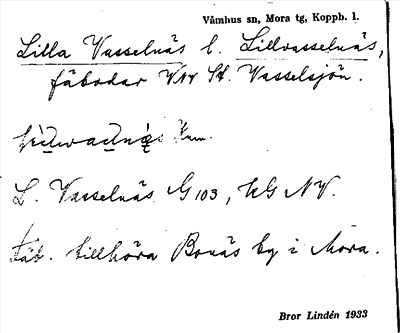 Våmhus sn, Mora tg, Koppb. l.
Lilla Vasselnäs l. Lillvasselnäs,
fäbodar VNV St. Vasselsjön.
L. Vasselnäs G 103, KG NV.
Fäb. tillhöra Bonäs by i Mora.
Bror Lindén 1933